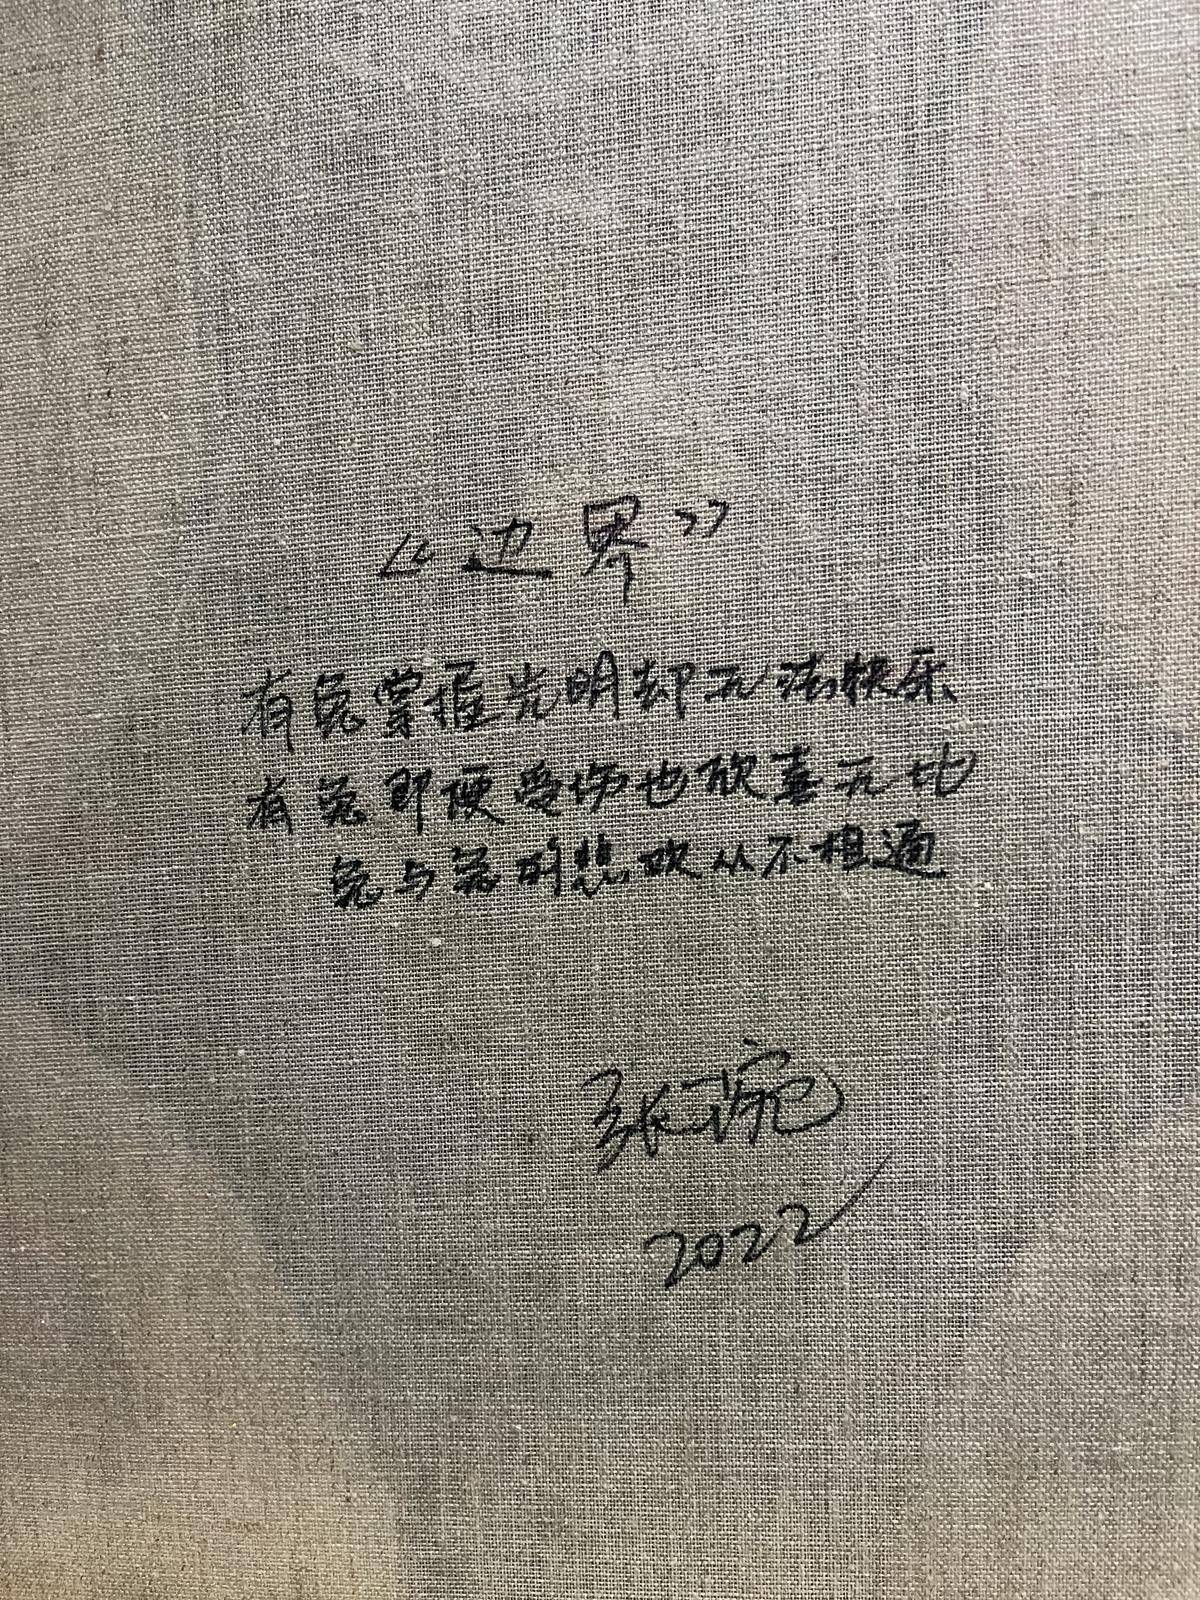 《边界》
有兔掌握光明却无法快乐
有兔即便受伤也欣喜无比
兔与兔的悲欢从不相通
张琬
2022